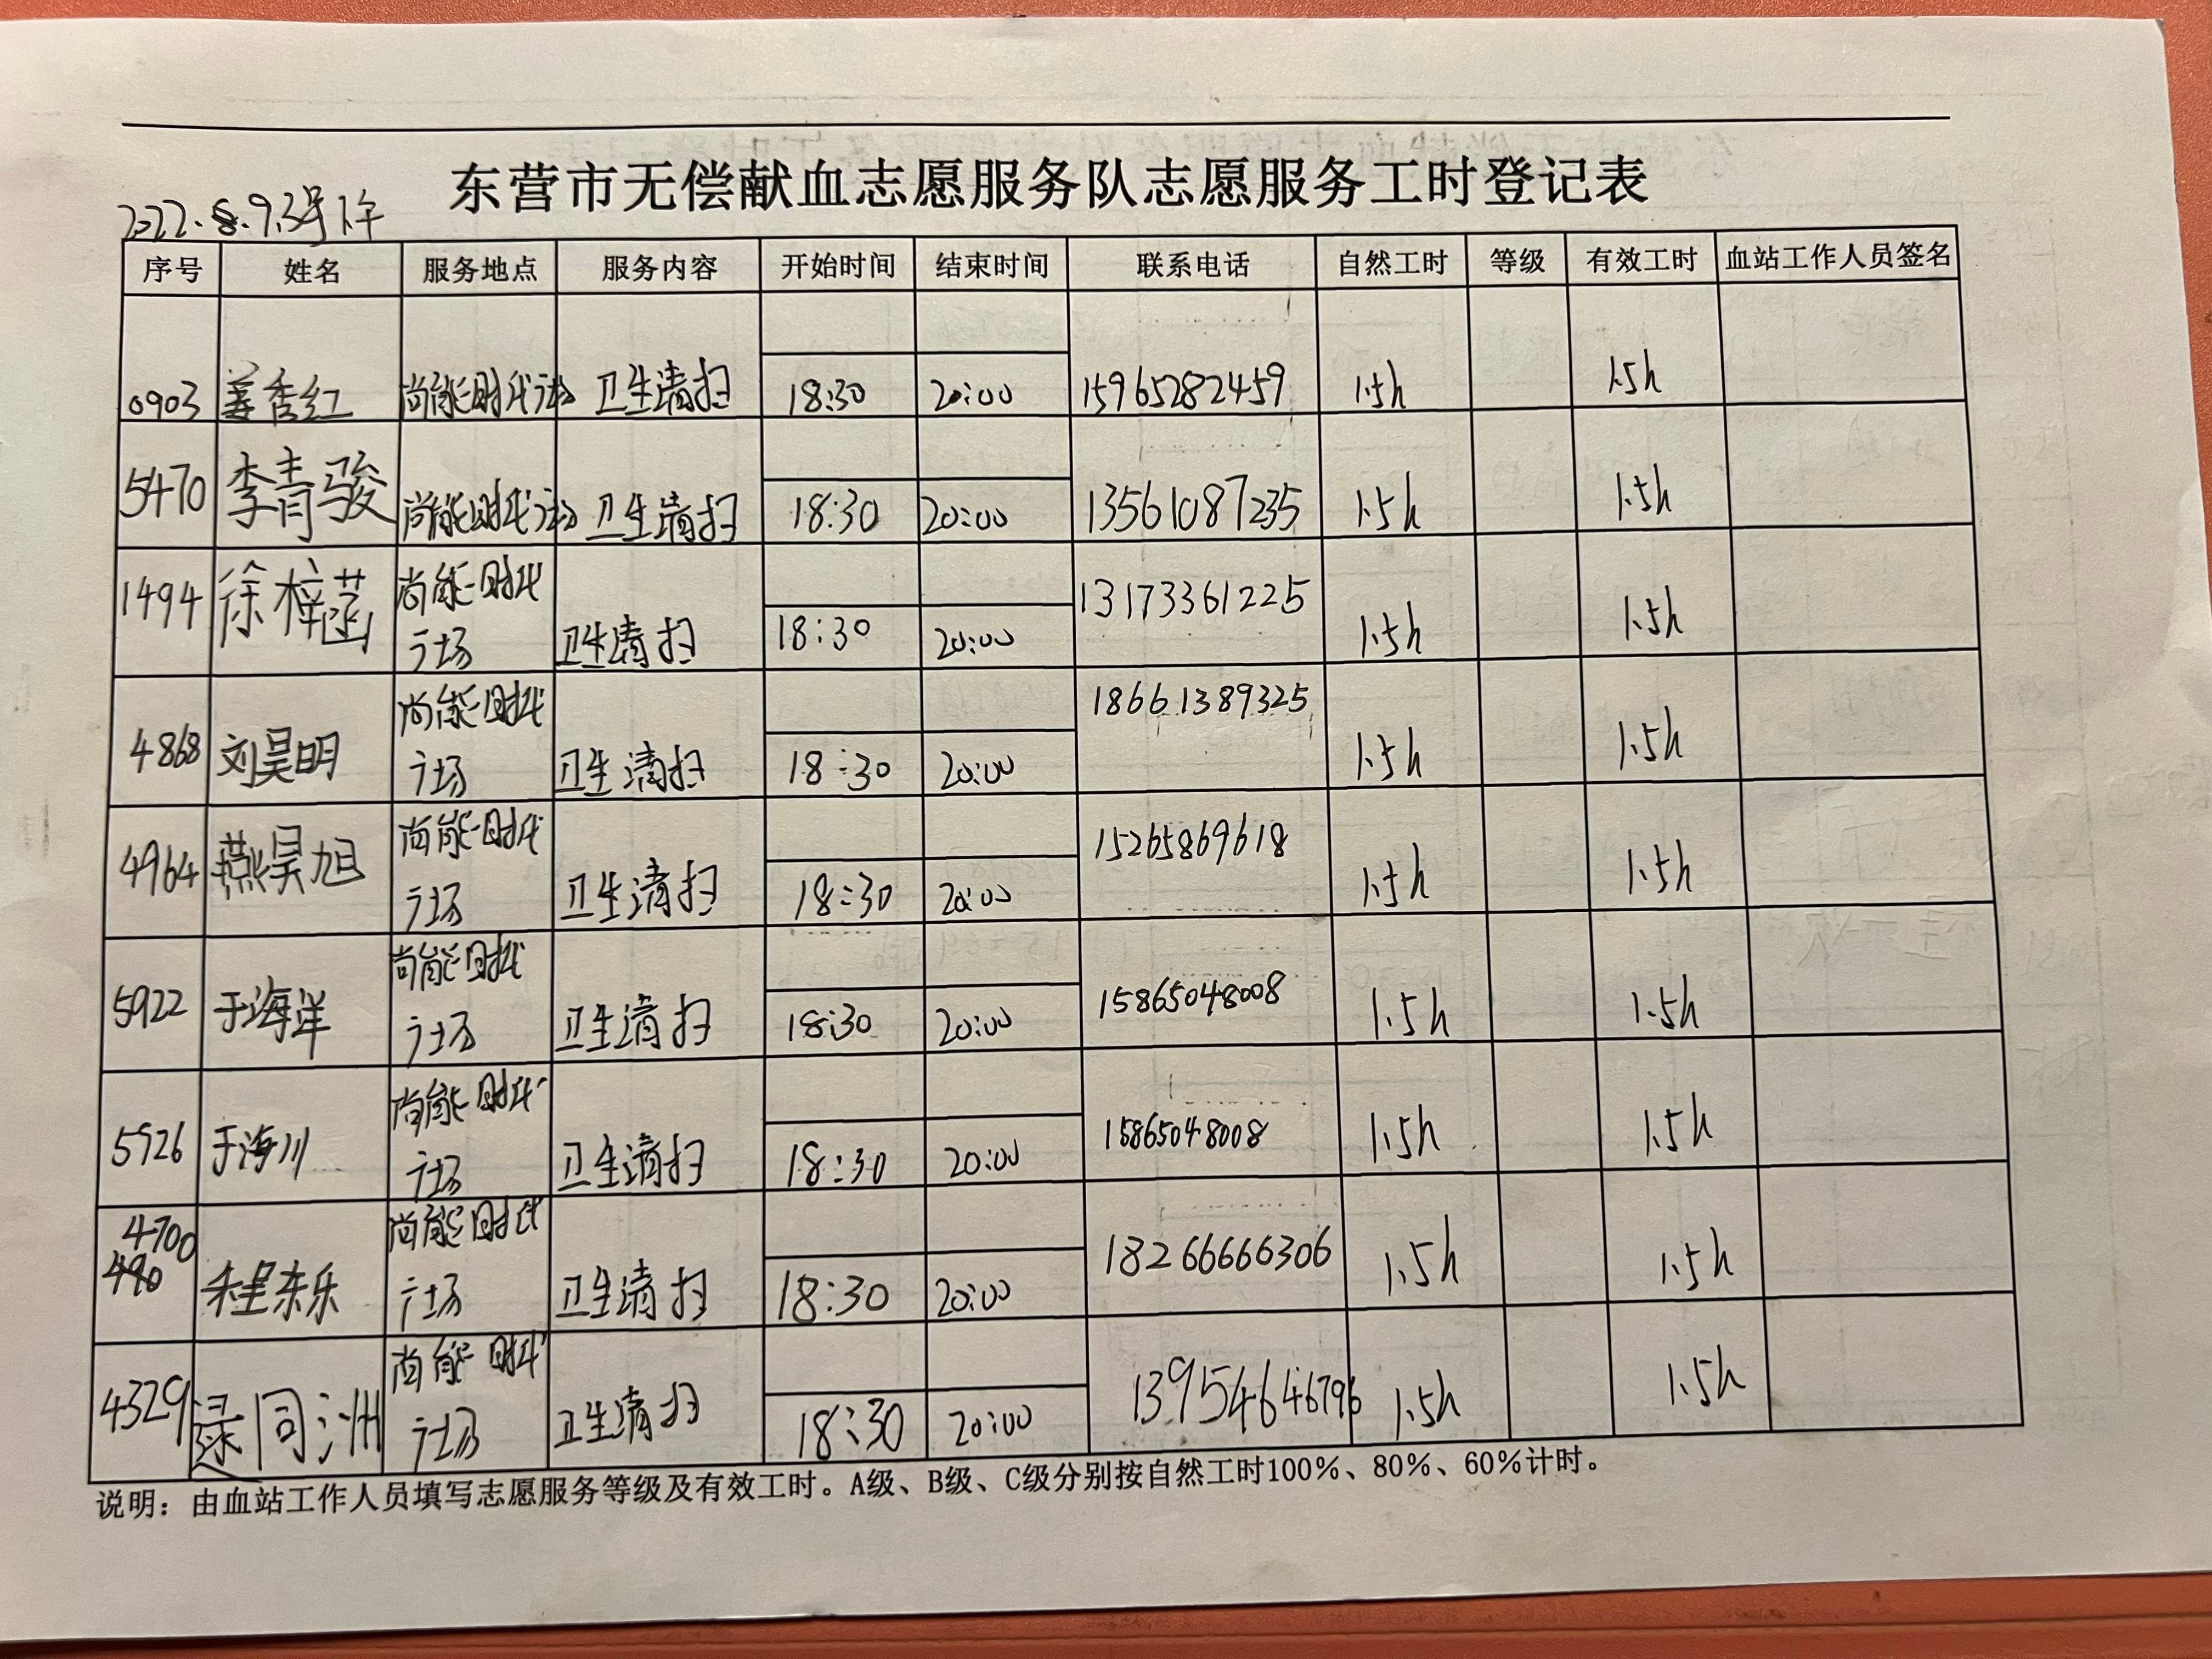 东营市无偿献血志愿服务队志愿服务工时登记表
2022.8.9.3号下午
序号 姓名 服务地点 服务内容 开始时间 结束时间 联系电话 自然工时 等级 有效工时 血站工作人员签名
0903 姜秀红 尚能时代广场 卫生清扫 18:30 20:00 15965282459 1.5h 1.5h
5470 李青骏 尚能时代广场 卫生清扫 18:30 20:00 13561087235 1.5h 1.5h
1494 徐梓菡 尚能时代
广场 卫生清扫 18:30 20:00 13173361225 1.5h 1.5h
4868 刘昊明 尚能时代
广场 卫生清扫 18:30 20:00 18661389325 1.5h 1.5h
4964 燕昊旭 尚能时代
广场 卫生清扫 18:30 20:00 15265869618 1.5h 1.5h
5922 于海洋 尚能时代
广场 卫生清扫 18:30 20:00 15865048008 1.5h 1.5h
5926 于海川 尚能时代
广场 卫生清扫 18:30 20:00 15865048008 1.5h 1.5h
4700 程东乐 尚能时代
广场 卫生清扫 18:30 20:00 18266666306 1.5h 1.5h
4329 逯同洲 尚能时代
广场 卫生清扫 18:30 20:00 13954646796 1.5h 1.5h
说明：由血站工作人员填写志愿服务等级及有效工时。A级、B级、C级分别按自然工时100%、80%、60%计时。